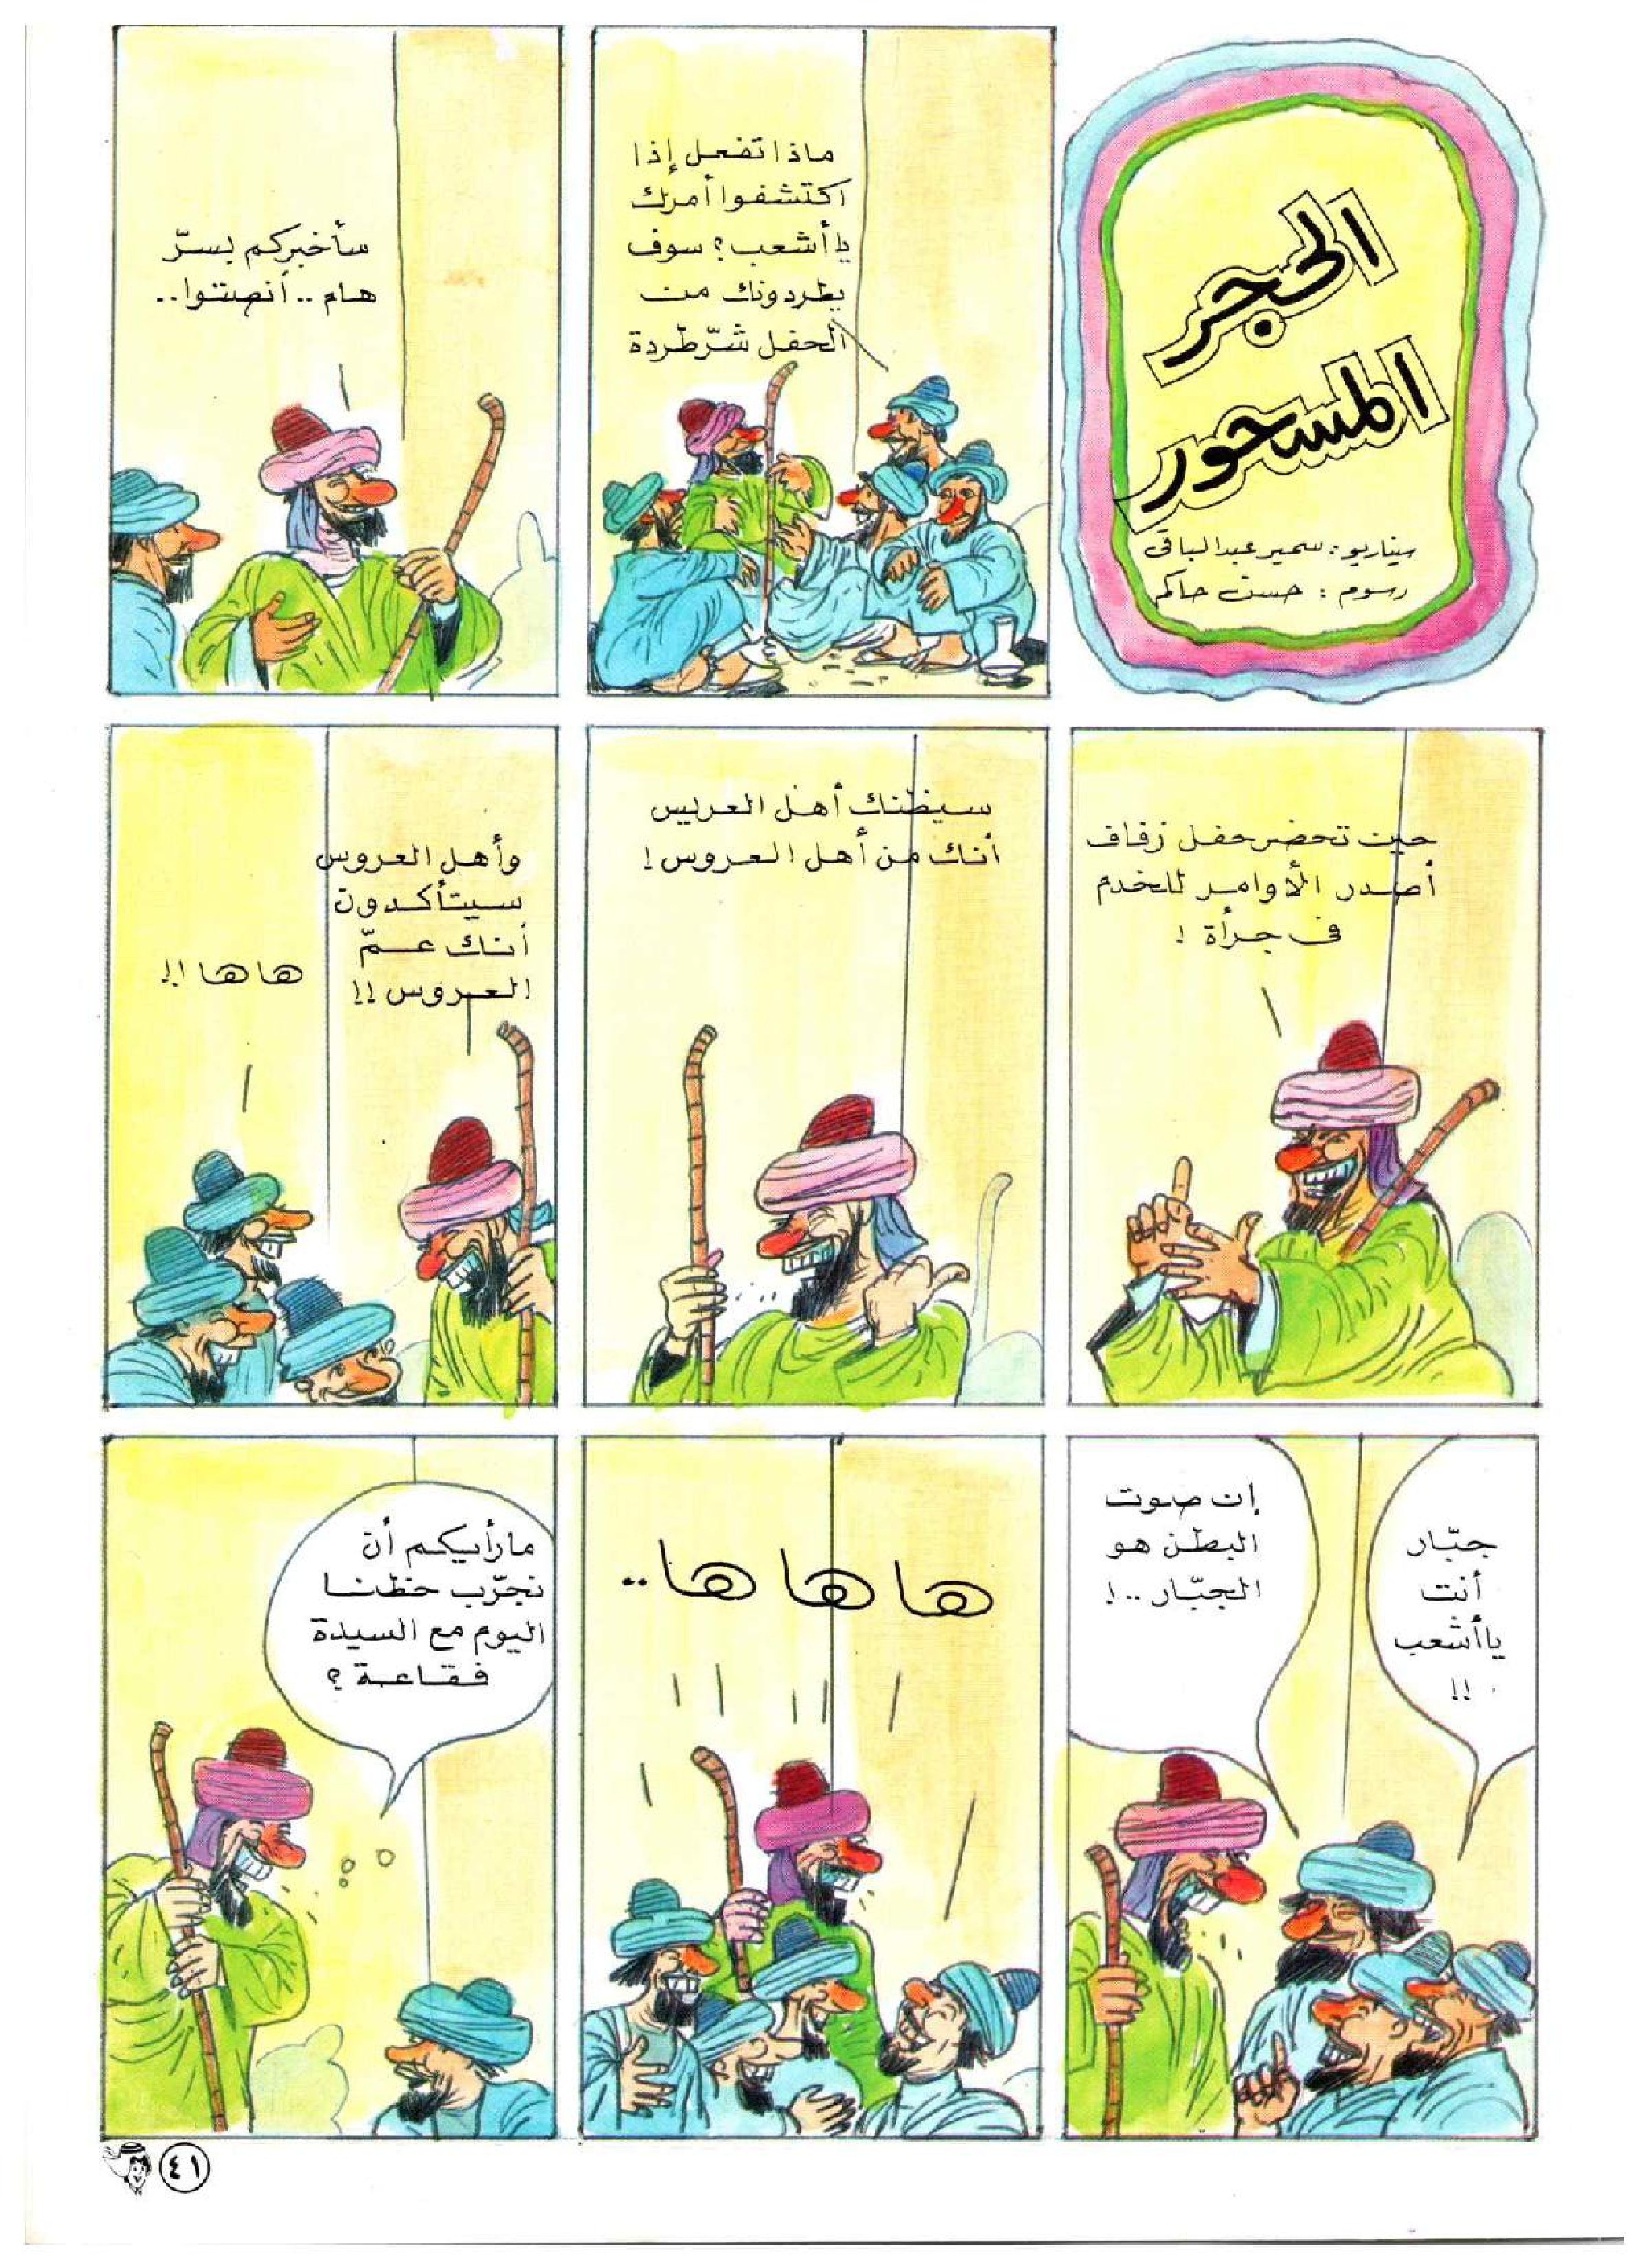 الحجر
المسحور
سيناريو: سمير عبدالباقى
رسوم: حسن حاكم
ماذا تفعل إذا
اكتشفوا أمرك
يا أشعب؟ سوف
يطردونك من
الحفل شرّ طردة
سأخبركم بسرّ
هام.. أنصتوا..
حين تحضر حفل زفاف
أصدر الأوامر للخدم
فى جرأة!
سيظنك أهل العريس
أنك من أهل العروس!
وأهل العروس
سيتأكدون
أنك عمّ
العروس!!
ها ها!!
جبّار
أنت
يا أشعب
!!
إن صوت
البطن هو
الجبّار..!
ها ها ها..
ما رأيكم أن
نجرّب حظنا
اليوم مع السيدة
فقاعة؟
٤١